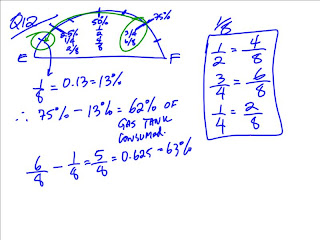 Q12
50%
4/8
75%
3/4
6/8
25%
1/4
2/8
E
F
1/8 = 0.13 = 13%
∴ 75% - 13% = 62% OF
GAS TANK
CONSUMED.
6/8 - 1/8 = 5/8 = 0.625 = 63%
1/8
1/2 = 4/8
3/4 = 6/8
1/4 = 2/8